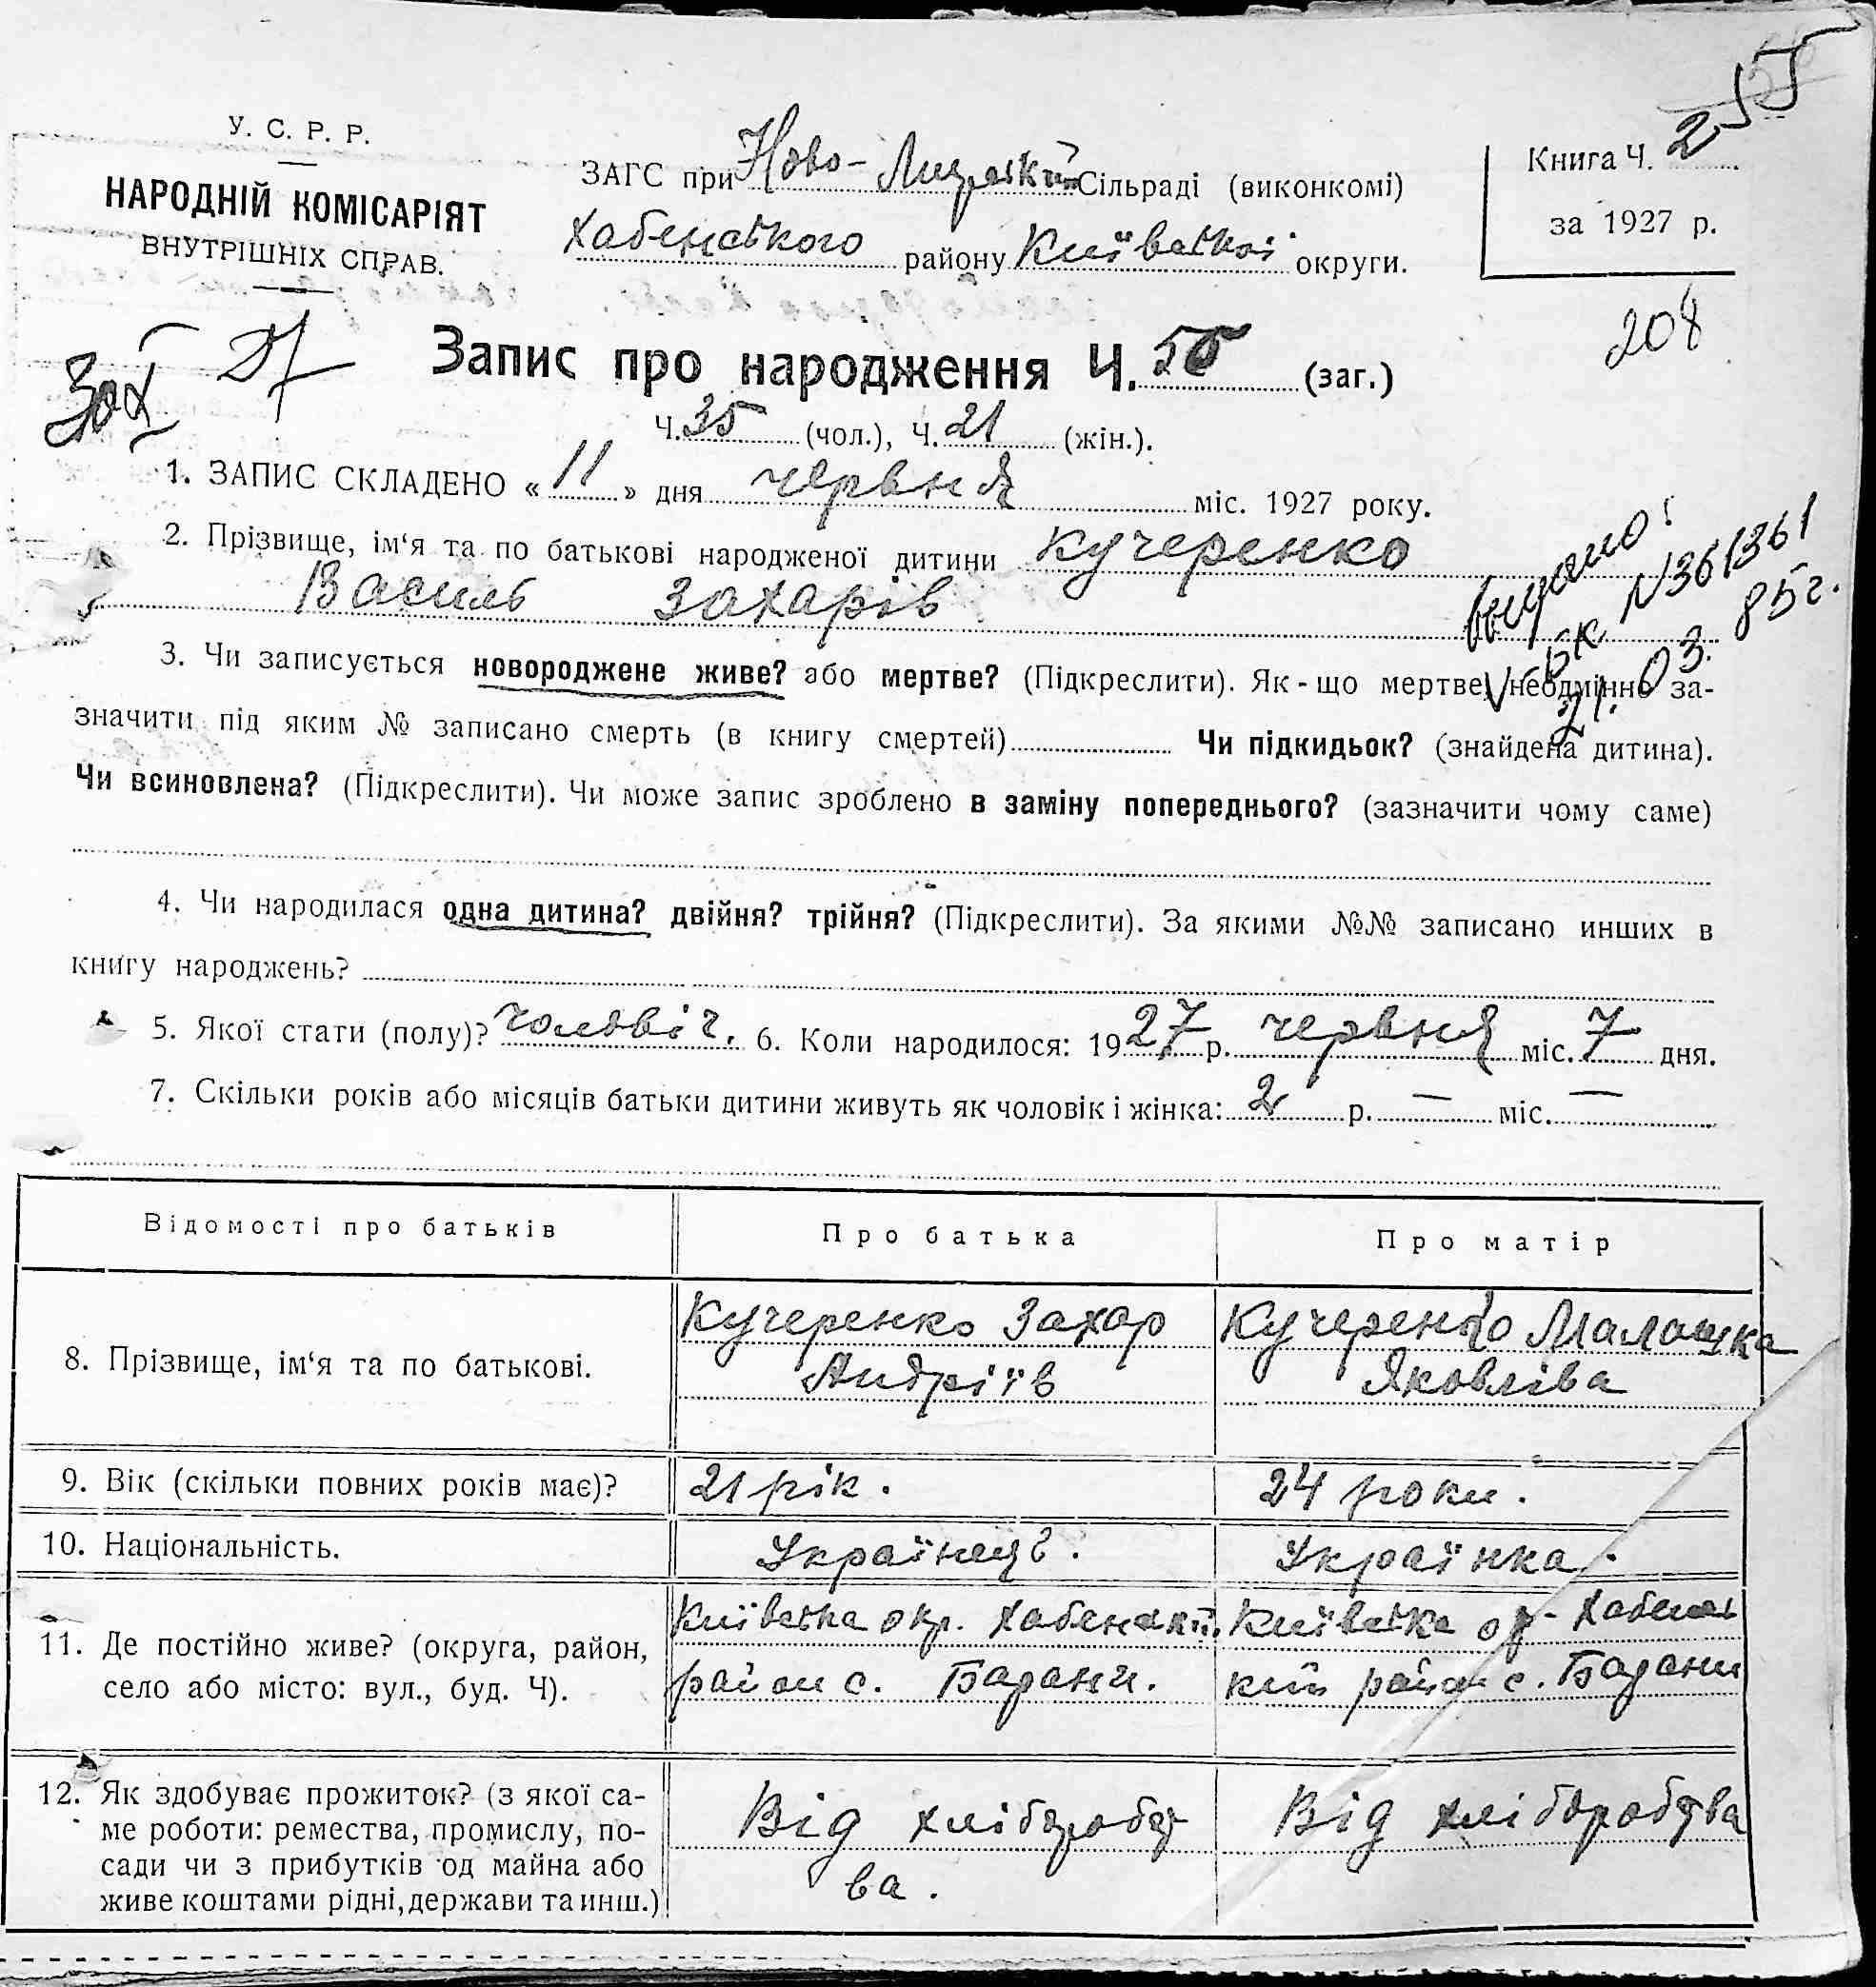 55
У. С. Р. Р.
НАРОДНІЙ КОМІСАРІЯТ
ВНУТРІШНІХ СПРАВ.
ЗАГС при Ново- Сільраді (виконкомі)
Хабенського району Київської округи.
Книга Ч. 2
за 1927 р.
208
Запис про народження Ч. 56 (заг.)
Ч. 35 (чол.), Ч. 21 (жін.).
1. ЗАПИС СКЛАДЕНО « 11 » дня червня міс. 1927 року.
2. Прізвище, ім‘я та по батькові народженої дитини Кучеренко
Василь Захарів
видано!
N361361
21. 03. 85г.
3. Чи записується новороджене живе? або мертве? (Підкреслити). Як-що мертве, необмінно за-
значити під яким № записано смерть (в книгу смертей) Чи підкидьок? (знайдена дитина).
Чи всиновлена? (Підкреслити). Чи може запис зроблено в заміну попереднього? (зазначити чому саме)
4. Чи народилася одна дитина? двійня? трійня? (Підкреслити). За якими №№ записано инших в
книгу народжень?
5. Якої стати (полу)? чоловіч. 6. Коли народилося: 1927 р. червня міс. 7 дня.
7. Скільки років або місяців батьки дитини живуть як чоловік і жінка: 2 р. — міс. —
Відомості про батьків Про батька Про матір
8. Прізвище, ім‘я та по батькові.
Кучеренко Захар
Андріїв
Кучеренко Малашка
Яковліва
9. Вік (скільки повних років має)? 21 рік. 24 роки.
10. Національність. Українець. Українка.
11. Де постійно живе? (округа, район,
село або місто: вул., буд. Ч).
Київська окр. Хабенський
район с. Барани.
Київська ок- Хабенсь
кий район с. Барани
12. Як здобуває прожиток? (з якої са-
ме роботи: ремества, промислу, по-
сади чи з прибутків од майна або
живе коштами рідні, держави та инш.)
Від хліборобст
ва.
Від хліборобства